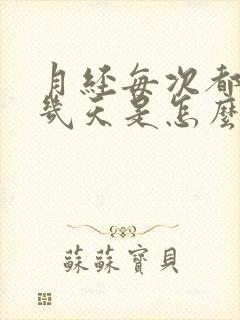 月經每次都
幾天是怎麼
蘇蘇寶貝